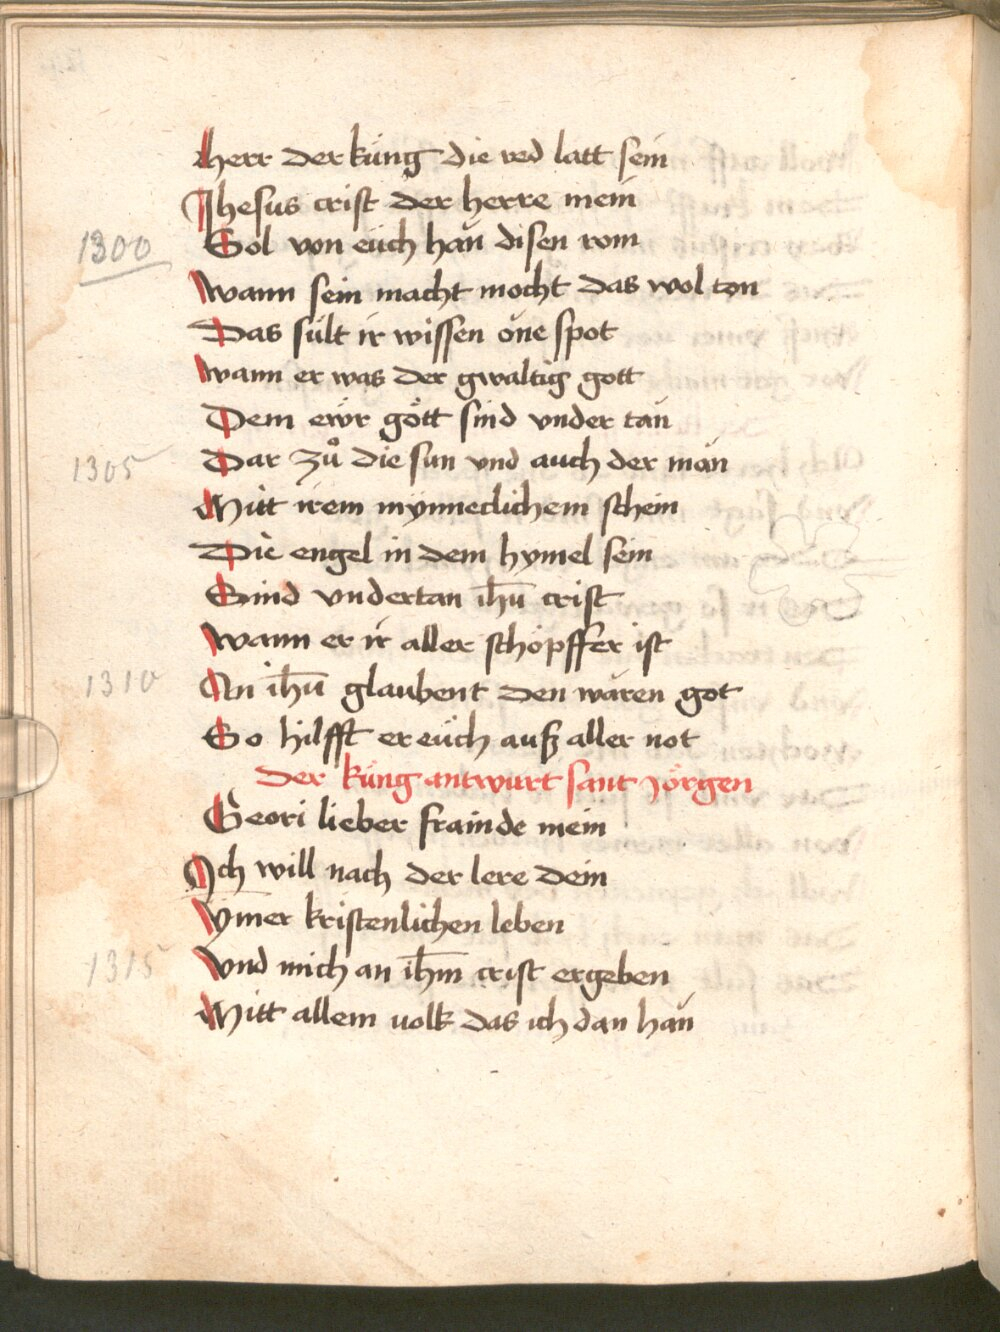 Herr der küng die red latt sein
Jhesus crist der herre mein
1300 Sol von eüch han disen rom
Wann sein macht mocht das wol ton
Das sült ir wissen one spot
Wann er was der gwaltig gott
Dem ewr gött sind vnder tan
1305 Dar zuͦ die sun vnd auch der mon
Mitt irem mynneclichem schein
Die engel in dem hymel sein
Sind vndertan ihu̅ crist
Wann er ir aller schöpffer ist
1310 An ihu̅ glaubent den waren got
So hilfft er eüch auß aller not
Der küng antwurt sant Jörgen
Geori lieber frainde mein
Ich will nach der lere dein
Ymer kristenlichen leben
1315 Vnd mich an ihm̅ crist ergeben
Mitt allem uolk das ich dan han